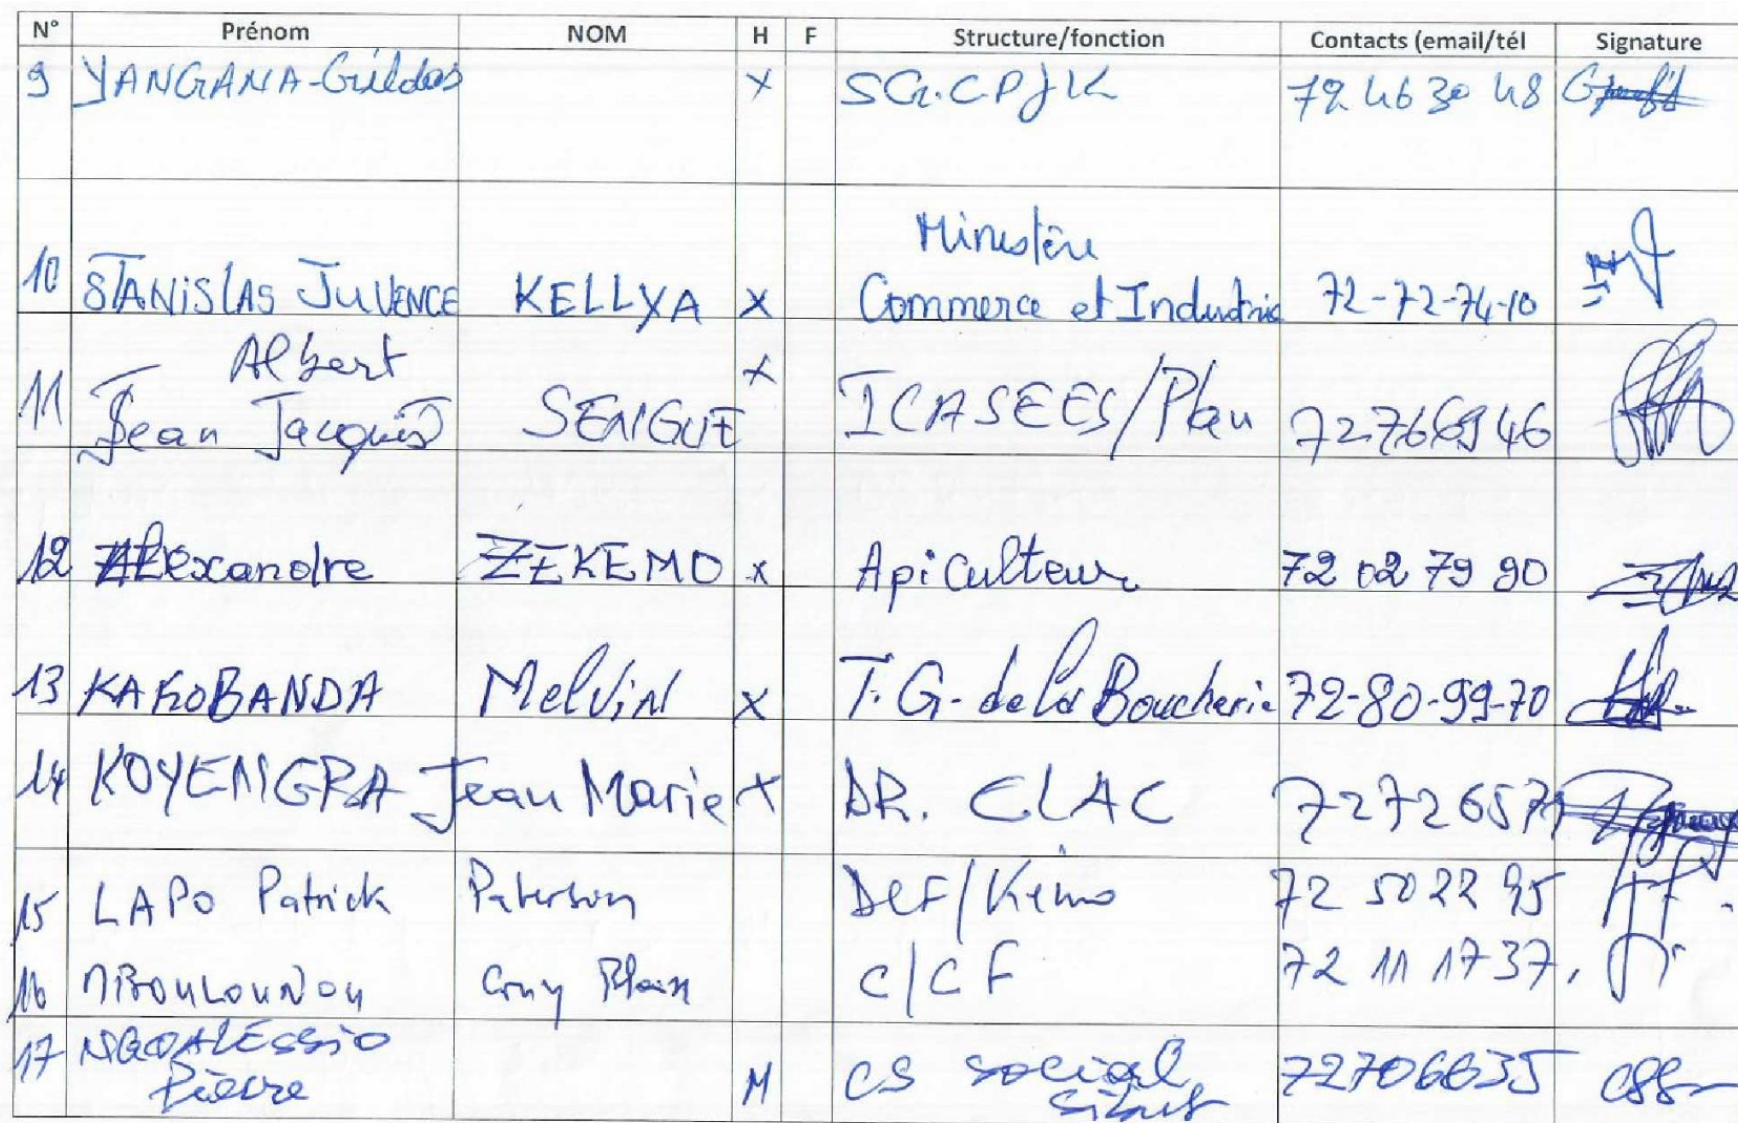 N° Prénom NOM H F Structure/fonction Contacts (email/tél Signature
9 YANGANA-Gildas X SG.CPJK 72 46 30 48
Ministère
10 STANISLAS JUVENCE KELLYA X Commerce et Industrie 72-72-74-10
Albert
11 Jean Jacques SENGUE X ICASEES/Plan 72766946
12 Alexandre ZEKEMO X Apiculteur 72 02 79 90
13 KAKOBANDA Melvin X T.G. de la Boucherie 72-80-99-70
14 KOYENGRA Jean Marie X DR. CLAC 72726571
15 LAPO Patrick Paterson DEF/Kémo 72 50 22 95
16 Guy C/CF 72 11 17 37
17 NGOALESSIO M CS social 72706635
Pierre Sibut